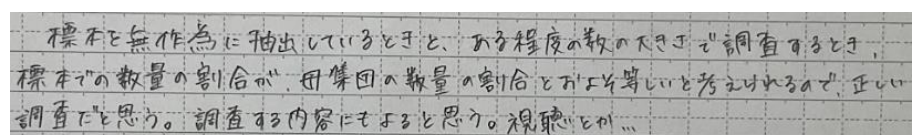 標本を無作為に抽出しているときと、ある程度の数の大きさで調査するとき、
標本での数量の割合が、母集団の数量の割合とおよそ等しいと考えられるので、正しい
調査だと思う。調査する内容にもよると思う。視聴とか…